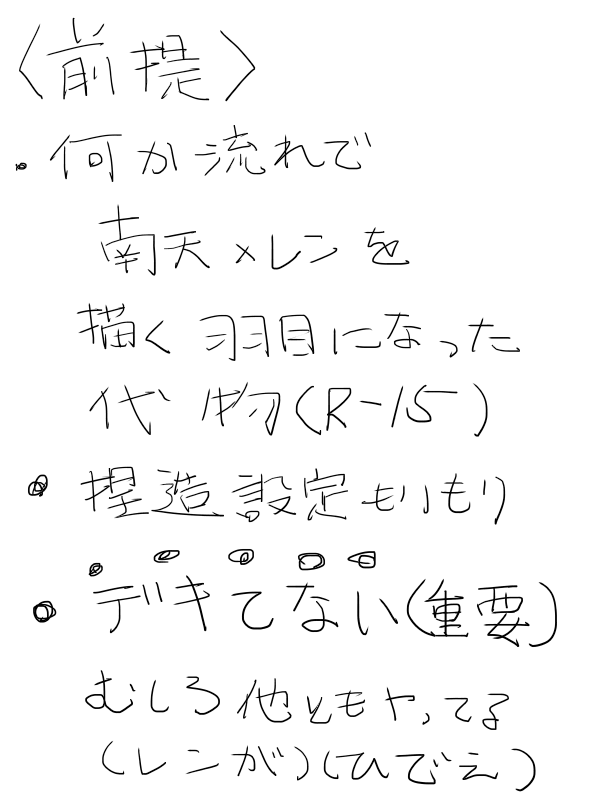 〈前提〉
・何か流れで
南天×レンを
描く羽目になった
代物(R-15)
・捏造設定もりもり
・デキてない(重要)
むしろ他ともヤってる
(レンが)(ひでえ)